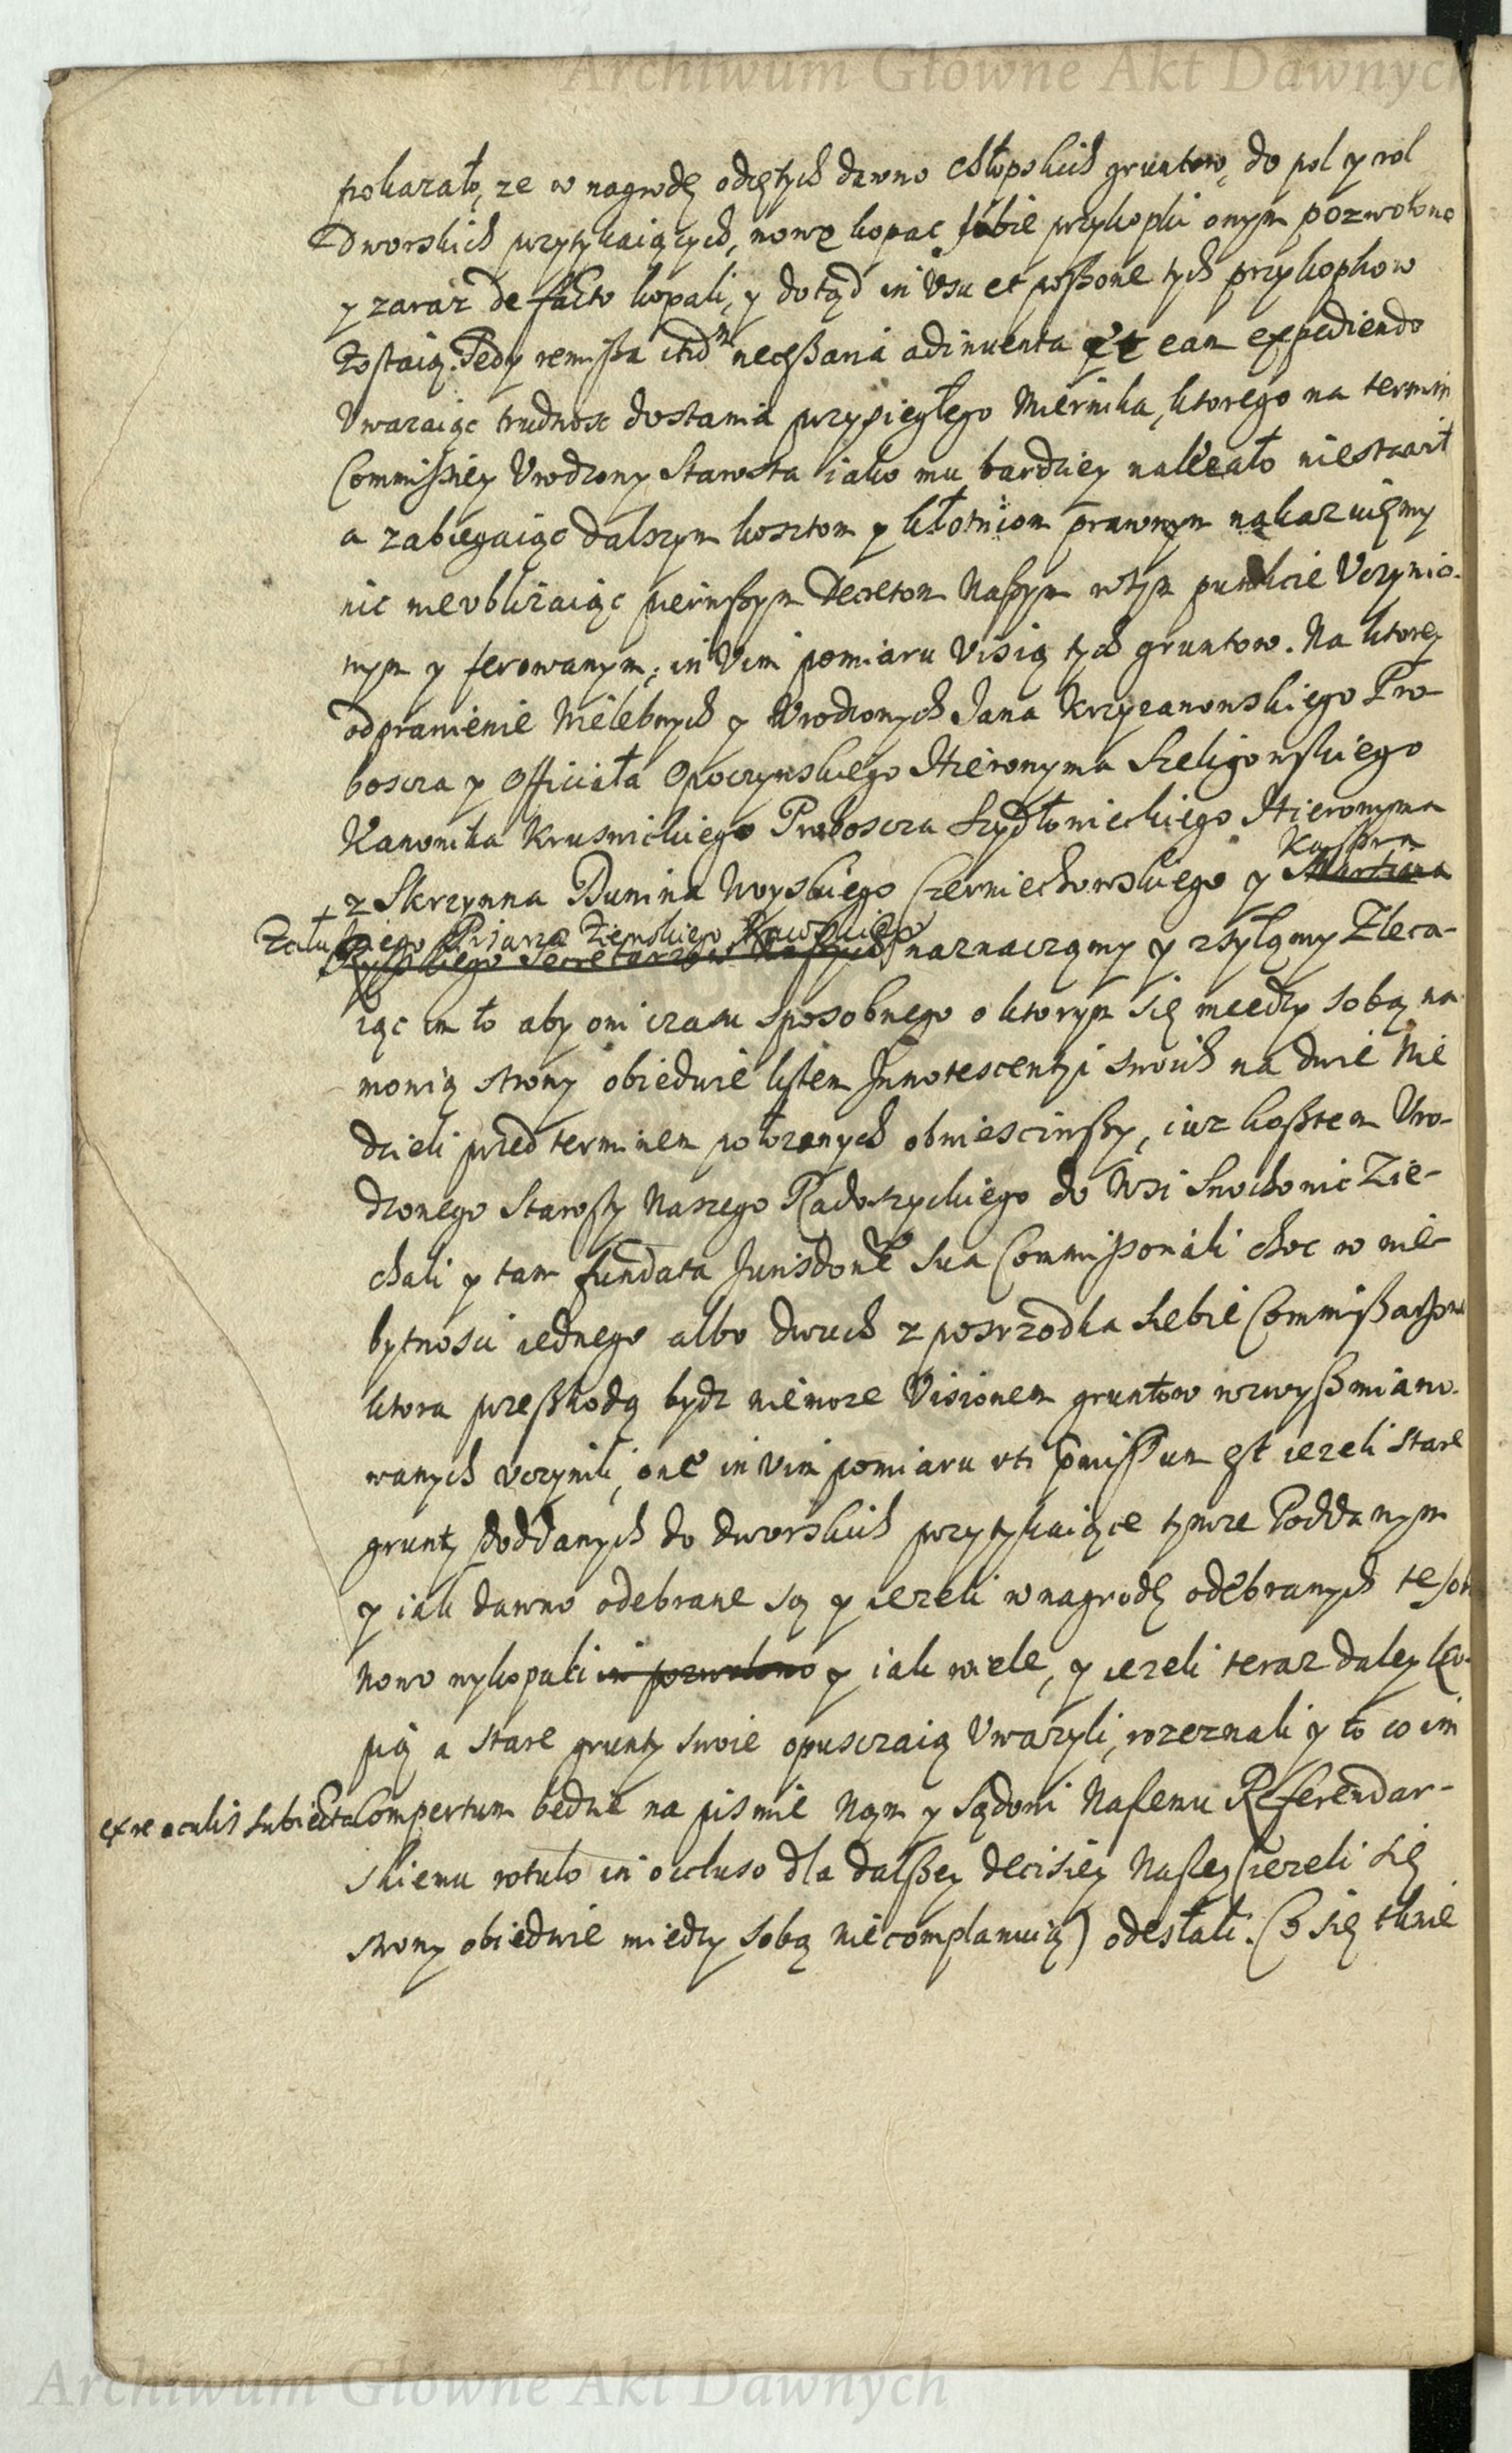 Archiwum Główne Akt Dawnych
pokazało, ze w nagrodę odiętych dawno chłopskich gruntow, do pol y rol
Dworskich przytykaiących, nowe kopac sobie przykopki onym pozwolono
y zaraz de facto kopali, y dotąd in Usu et possone tych przykopkow
Zostaią. Tedy remissa necessaria adinventa Et eam expediendo
Uwazaiąc trudnosc dostania przysięgłego Miernika, ktorego na termin
Commissiey Urodzony Starosta iako mu bardziey nalezało niestawił
a zabiegaiąc dalszym kosztom y kłotniom prawnym nakazuiemy
nic nieubliżaiąc pierwszym Decretom Naszym wtym punkcie Uczynio-
nym y ferowanym, in Vim pomiaru Visią tych gruntow. Na ktorey
odprawienie Wielebnych y Urodzonych Jana Krzyzanowskiego Pro-
boszcza y Officiała Opoczynskiego Hieronyma Szeligowskiego
Kanonika Kruswickiego Proboszcza Szydłowieckiego Hieronyma
Kaspra
z Skrzynna Dunina Woyskiego Czerniechowskiego y Marciana
+ Załuskiego Pisarza Ziemskiego Rawskiego
Secretarzow Naszych naznaczamy y zsyłamy Zleca-
iąc im to aby oni czasu sposobnego o ktorym się miedzy sobą na
mowią strony obiedwie listem Innotescentyi swoich na dwie Nie
dzieli przed terminem połozonych obwiesciwszy, iuz kosztem Uro-
dzonego Starosty Naszego Radoszyckiego do Wsi Snochowic Zie-
chali y tam fundata Jurisdone sua Commissoriali choc w nie-
bytnosci iednego albo dwuch z posrzodka siebie Commissarzow
ktora przeszkodą bydz niemoze Visionem gruntow wzwysz miano-
wanych uczynili, one in vim pomiaru uti pmissum est iezeli stare
grunty Poddanych do dworskich przytykaiące tymze Poddanym
y iak dawno odebrane są y iezeli w nagrodę odebranych te sobie
nowo wykopali im pozwolono y iak wiele, y iezeli teraz daley ko-
pią a stare grunty swoie opusczaią Uwazyli, rozeznali y to co im
ex re oculis subiecta Compertum bedzie na pismie Nam y Sądowi Naszemu Referendar-
skiemu rotulo in occluso dla dalszey decisiey Naszey (iezeli się
strony obiedwie miedzy sobą nie complanuią) odesłali. Co się tknie
Archiwum Główne Akt Dawnych